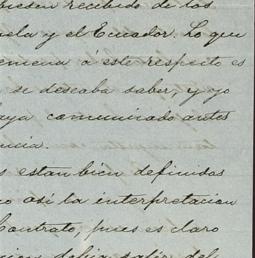 biesen recibido de los
uela y el Ecuador. Lo que
emena á este respeto es
se deseaba saber, y yo
aya comunicado antes
ncia.
s estan bien definidas
o así la interpretacion
Contrato, pues es claro
debia salir del